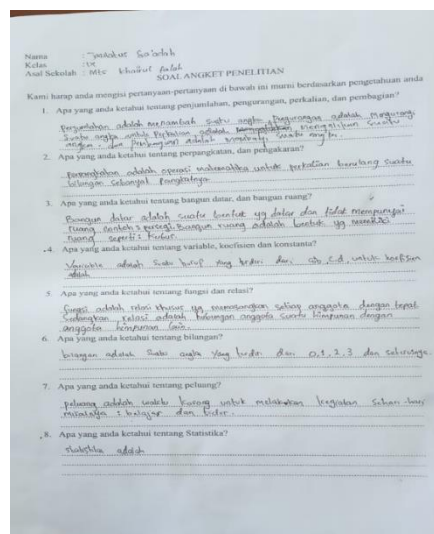 Nama :
Kelas : VII
Asal Sekolah : MTs Khairul Falah
SOAL ANGKET PENELITIAN
Kami harap anda mengisi pertanyaan-pertanyaan di bawah ini murni berdasarkan pengetahuan anda
1. Apa yang anda ketahui tentang penjumlahan, pengurangan, perkalian, dan pembagian?
Penjumlahan adalah menambah suatu angka Pengurangan adalah mengurang
suatu angka Perkalian adalah mengalikan suatu
angka, dan Pembagian adalah suatu angka.
2. Apa yang anda ketahui tentang perpangkatan, dan pengakaran?
perpangkatan adalah operasi matematika untuk perkalian berulang suatu
bilangan sebanyak pangkatnya
3. Apa yang anda ketahui tentang bangun datar, dan bangun ruang?
Bangun datar adalah suatu bentuk yg datar dan tidak mempunyai
ruang contoh : persegi. Bangun ruang adalah bentuk yg memiliki
ruang seperti : kubus.
4. Apa yang anda ketahui tentang variable, koefisien dan konstanta?
Variable adalah suatu huruf yang terdiri dari a,b,c,d, untuk koefisien
adalah
5. Apa yang anda ketahui tentang fungsi dan relasi?
fungsi adalah relasi khusus yg memasangkan setiap anggota dengan tepat
sedangkan relasi adalah hubungan anggota suatu himpunan dengan
anggota himpunan lain.
6. Apa yang anda ketahui tentang bilangan?
bilangan adalah suatu angka yang terdiri dari 0,1,2,3 dan seterusnya.
7. Apa yang anda ketahui tentang peluang?
peluang adalah waktu kosong untuk melakukan kegiatan sehari-hari
misalnya : belajar dan tidur.
8. Apa yang anda ketahui tentang Statistika?
statistika adalah